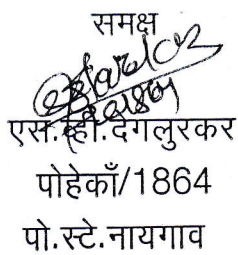 समक्ष
एस.व्ही.देगलुरकर
पोहेकाँ/1864
पो.स्टे.नायगाव